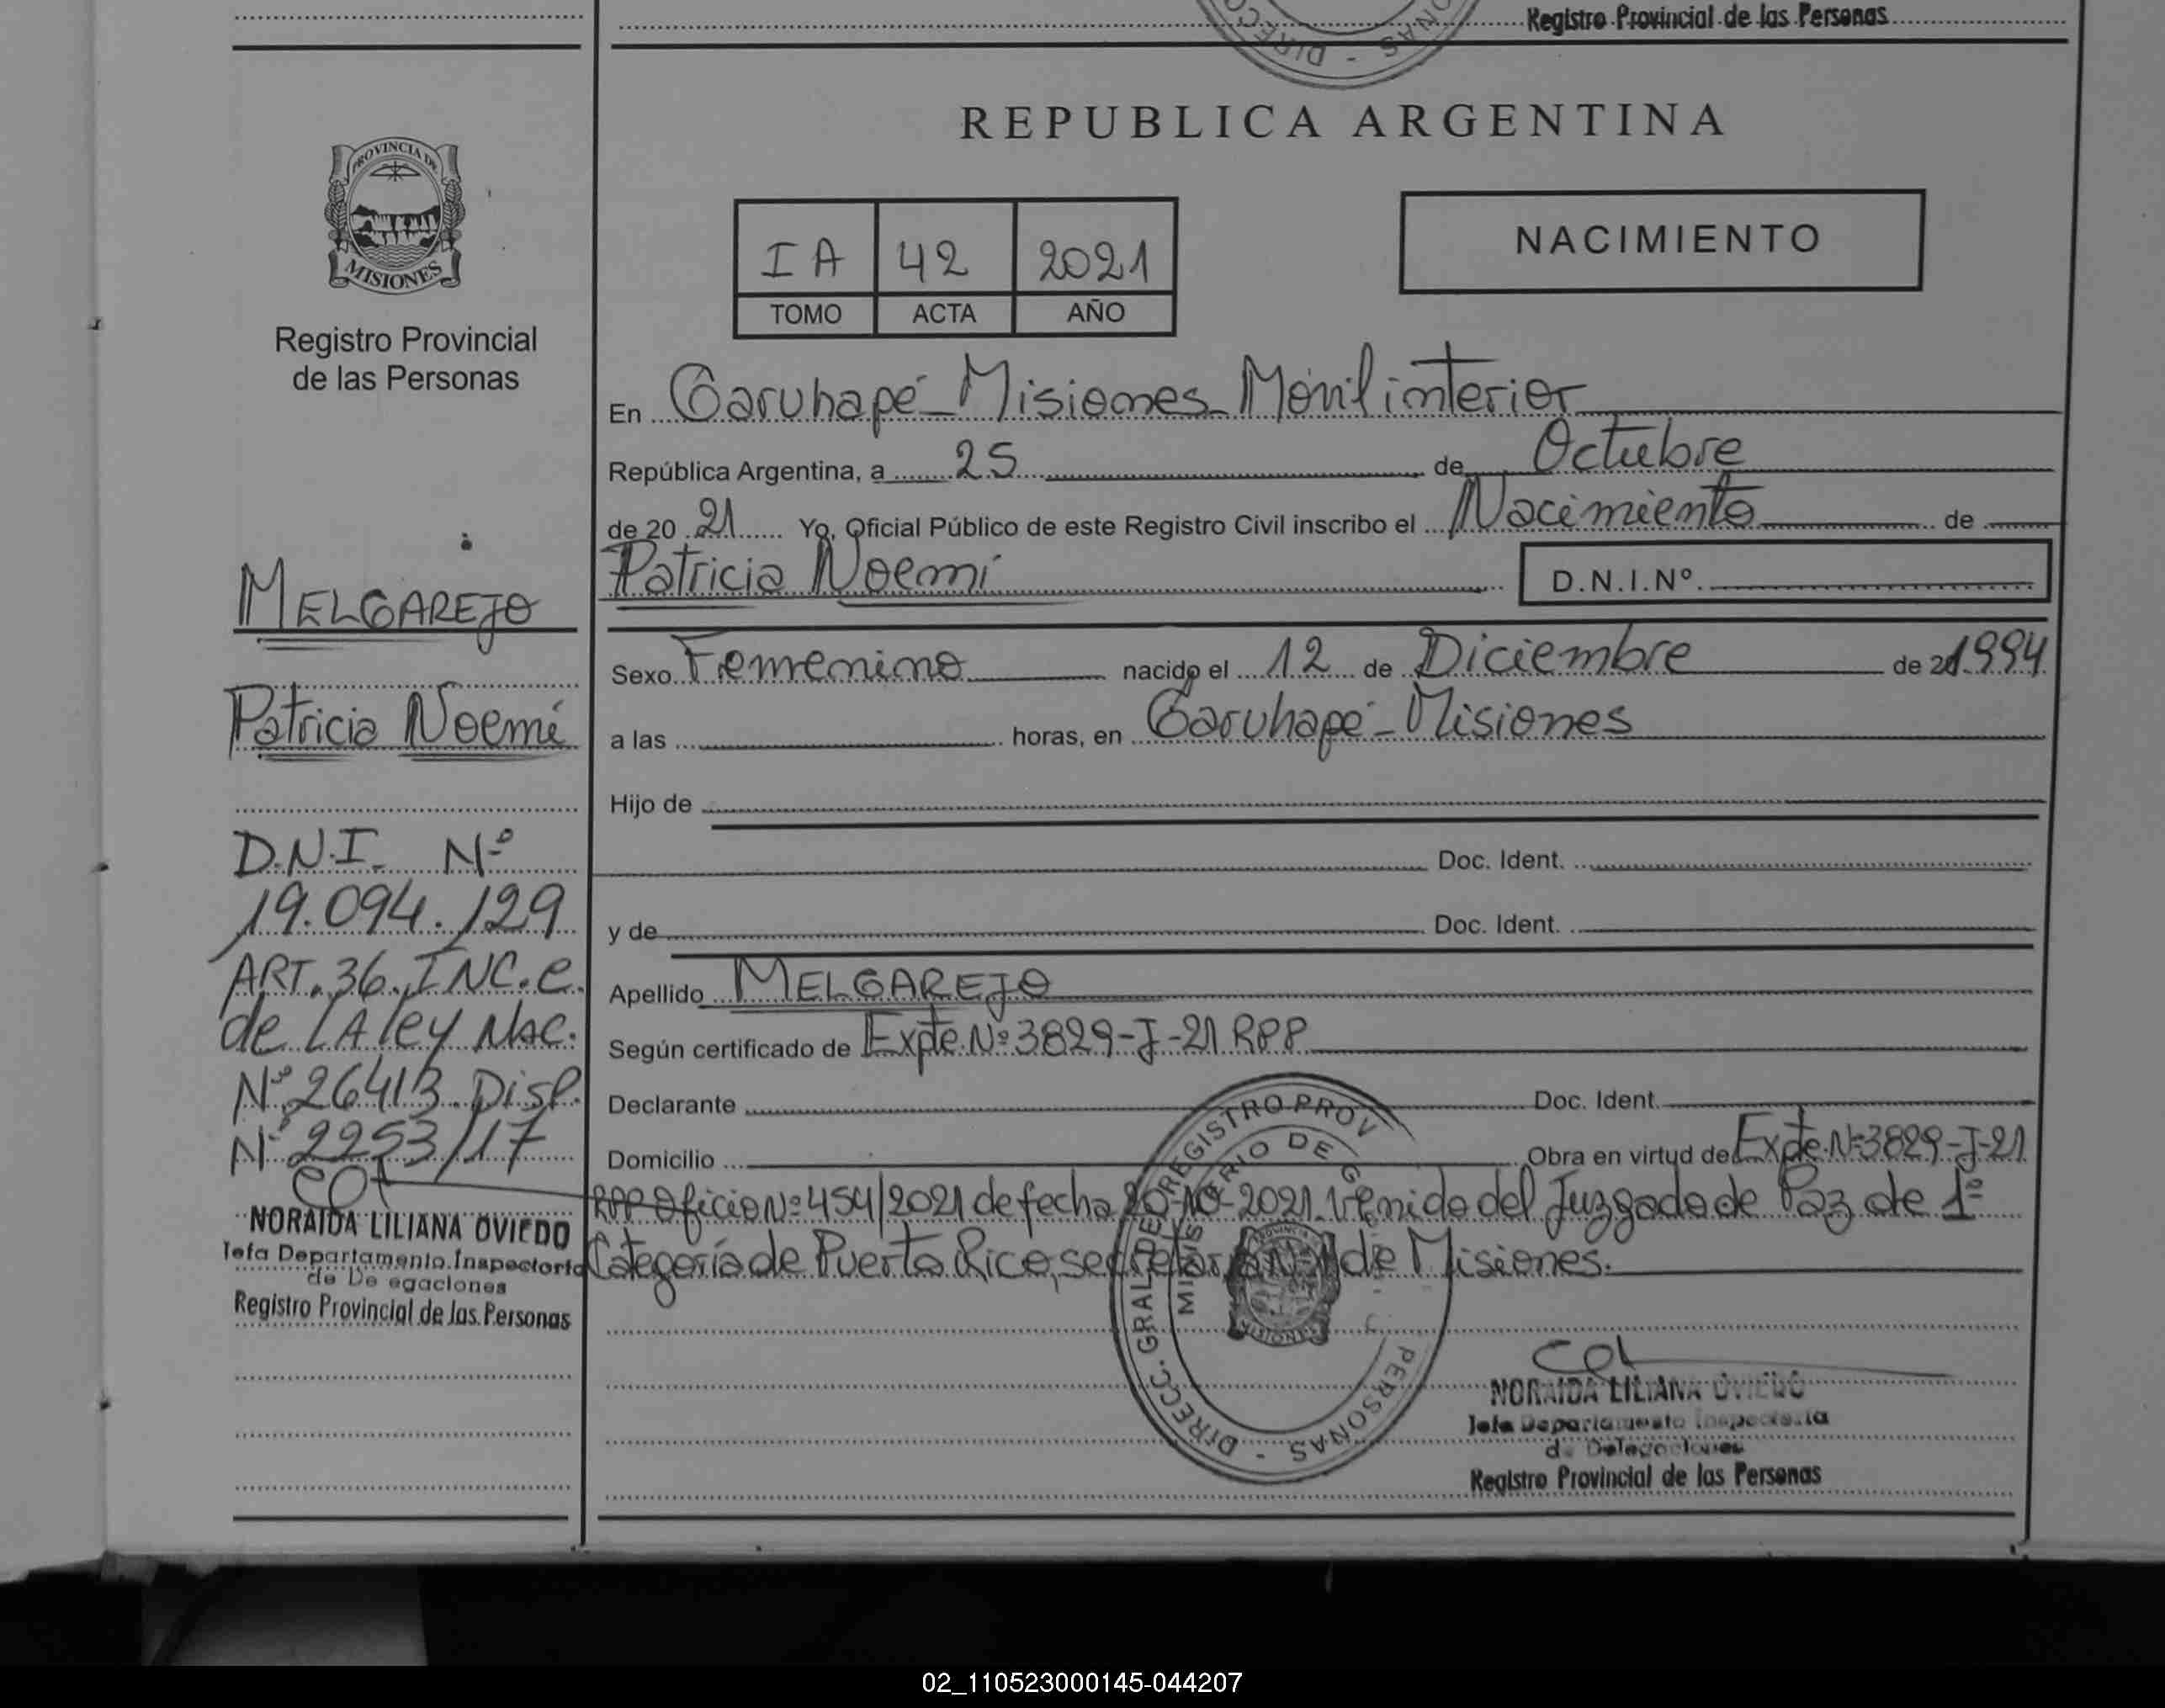 Registro Provincial de las Personas
DIRECC - NAS
REPUBLICA ARGENTINA
PROVINCIA DE
MISIONES
Registro Provincial
de las Personas
IA 42 2021
TOMO ACTA AÑO
NACIMIENTO
En Garuhapé - Misiones Móvil interior
República Argentina, a 25 de Octubre
de 20 21 Yo, Oficial Público de este Registro Civil inscribo el Nacimiento de
Patricia Noemí
D.N.I.Nº.
Sexo Femenino nacido el 12 de Diciembre de 1994
a las horas, en Garuhapé - Misiones
Hijo de
Doc. Ident.
y de Doc. Ident.
Apellido MELGAREJO
Según certificado de Expte. Nº 3829-J-21 RPP
Declarante Doc. Ident.
Domicilio Obra en virtud de Expte. Nº 3829-J-21
RPP Oficio Nº 454/2021 de fecha 20-10-2021. Venido del Juzgado de Paz de 1º
Categoría de Puerto Rico, secretaría Nº de Misiones.
MELGAREJO
Patricia Noemí
D.N.I. Nº
19.094.129
ART. 36. INC. e.
de LA ley Nac.
Nº 26413. Disp.
Nº 2253/17
NORAIDA LILIANA OVIEDO
Jefa Departamento Inspectoria
de De egaciones
Registro Provincial de las Personas
DIRECC. GRAL. DEL REGISTRO PROV
PERSONAS
MISIONES
NORAIDA LILIANA OVIEDO
Jefa Departamento Inspectoria
de Delegaciones
Registro Provincial de las Personas
02_110523000145-044207